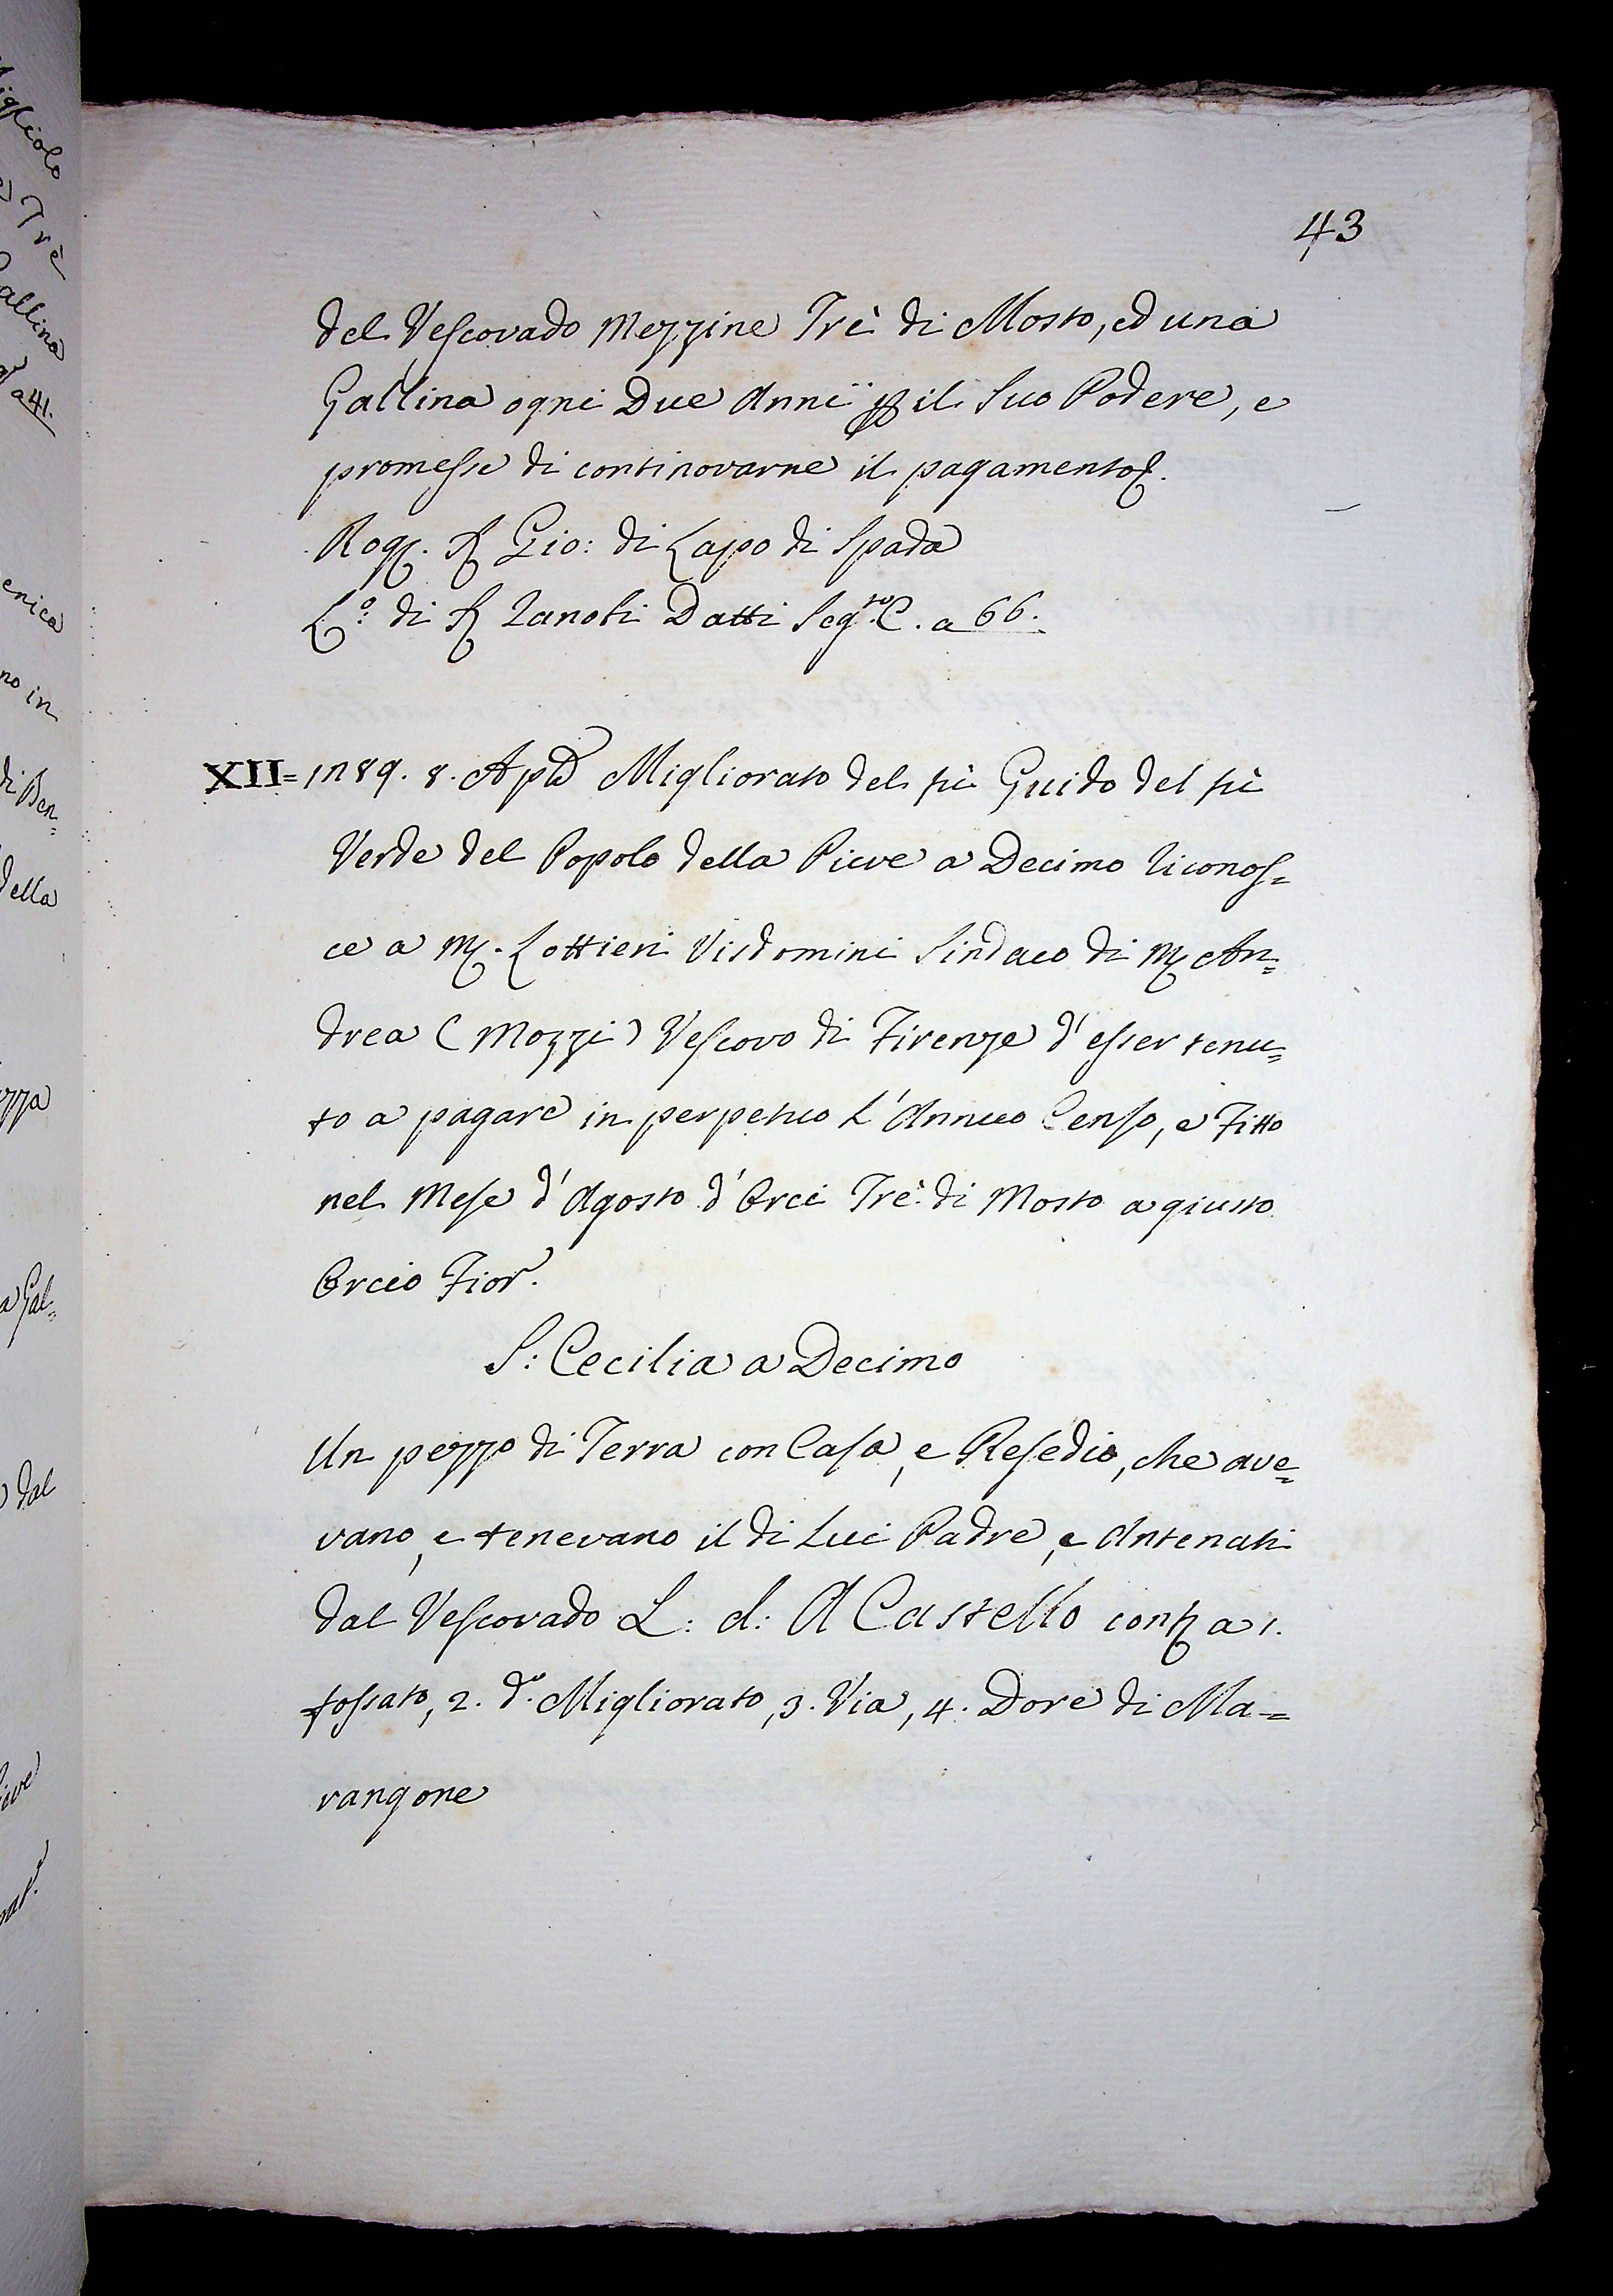 43
del Vescovado Mezzine Trè di Mosto, ed una
Gallina ogni Due Anni p il Suo Podere, e
promesse di continovarne il pagamento
Rog. S Gio: di Lapo di Spada
L.o di S Zanobi Datti Seg.to C. a 66.
XII= 1289. 8. Aple Migliorato del fù Guido del fù
Verde del Popolo della Pieve a Decimo riconos=
ce a M. Lottieri Visdomini Sindaco di M An=
drea (Mozzi) Vescovo di Firenze d'esser tenu=
to a pagare in perpetuo l'Annuo Censo, e Fitto
nel Mese d'Agosto d'Orci Trè di Mosto a giusto
Orcio Fior.
S: Cecilia a Decimo
Un pezzo di Terra con Casa, e Resedio, che ave=
vano, e tenevano il di Lui Padre, e Antenati
dal Vescovado L: d: A Castello conf a 1.
fossato, 2. d.o Migliorato, 3. Via, 4. Dore di Ma=
vangone